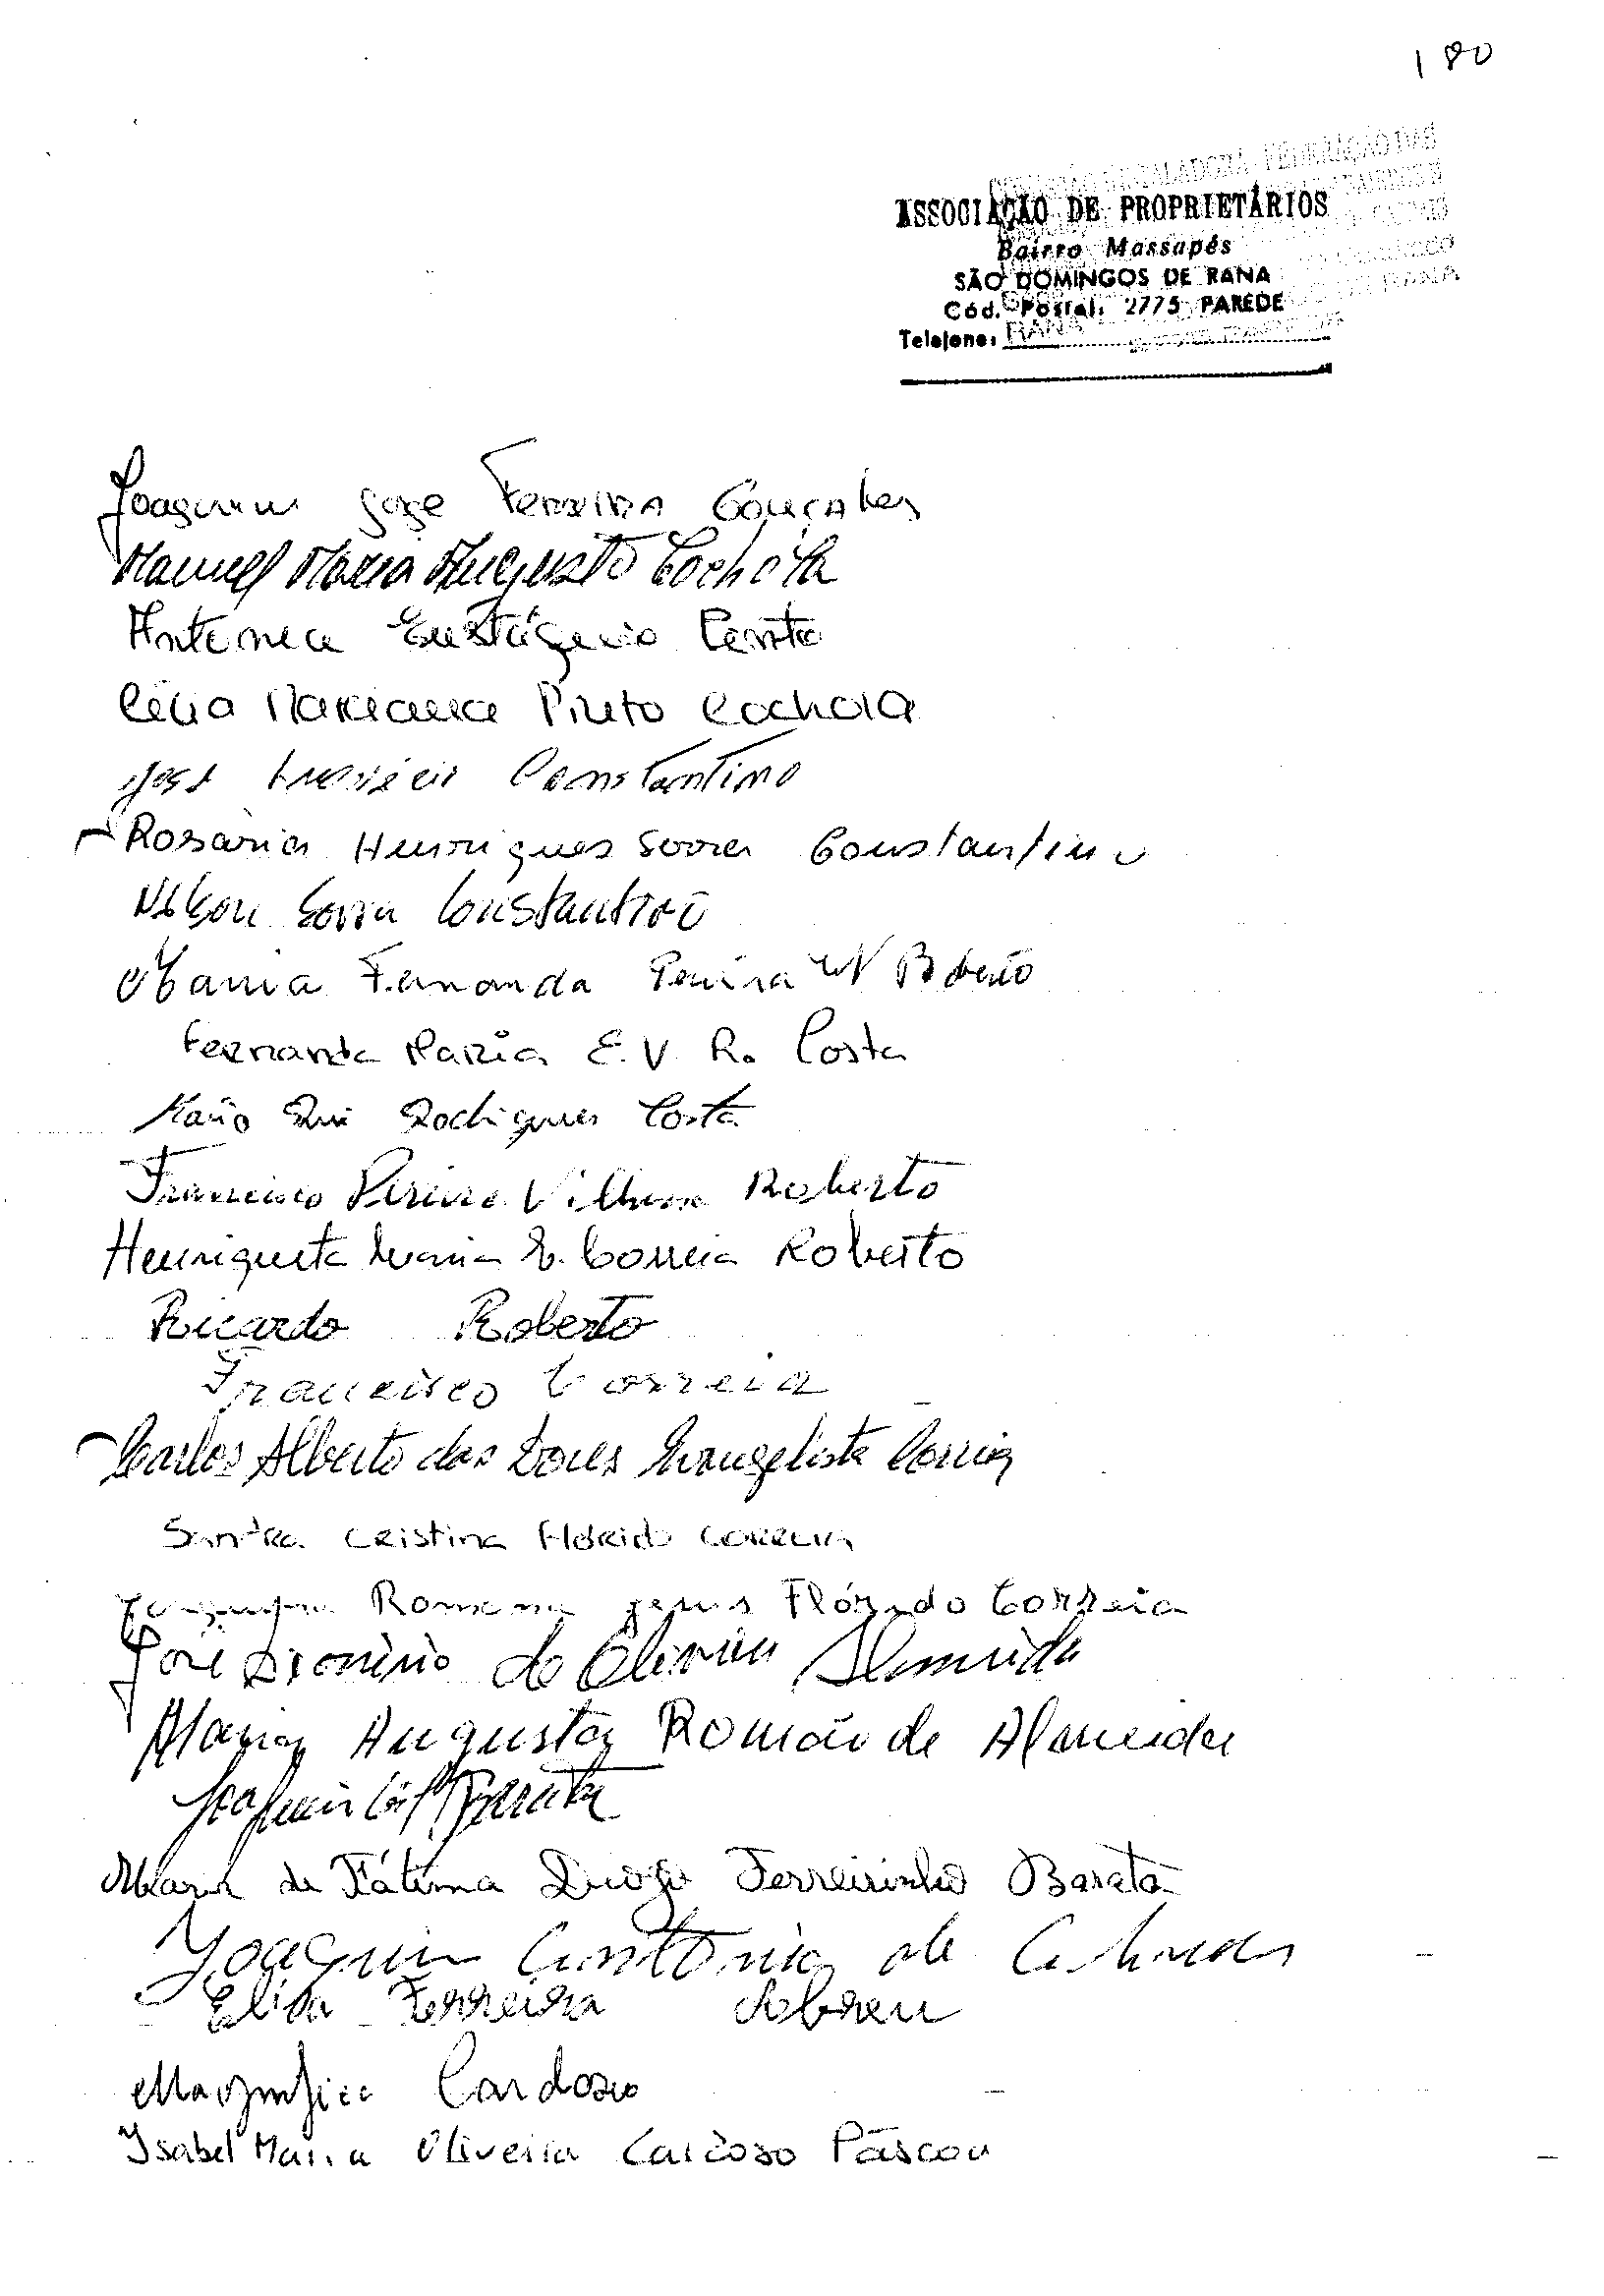 180
ASSOCIAÇÃO DE PROPRIETÁRIOS
Bairro Massapés
SÃO DOMINGOS DE RANA
Cód. Postal: 2775 PAREDE
Telefone:
Joaquim José Ferreira Gonçalves
Manuel Maria Augusto Cochola
Antonia Eustáquio
Célia Mariana Pinto Cochola
José Constantino
Rosária Henriques Serra Constantino
Nelson Serra Constantino
Maria Fernanda Pereira
Fernanda Maria E. V. R. Costa
Mário Rui Rodrigues Costa
Francisco Pereira Vilhena Roberto
Henriqueta Maria E. Correia Roberto
Ricardo Roberto
Francisco Correia
Carlos Alberto das Dores Evangelista Correia
Sandra Cristina Florido Correia
Romana Jesus Flórido Correia
José Dionisio de Oliveira Almeida
Maria Augusta Romão de Almeida
Joaquim Gil Barata
Maria de Fátima Diogo Ferreirinho Barata
Joaquim Antonio de
Elisa Ferreira Abreu
Cardoso
Isabel Maria Oliveira Cardoso Páscoa